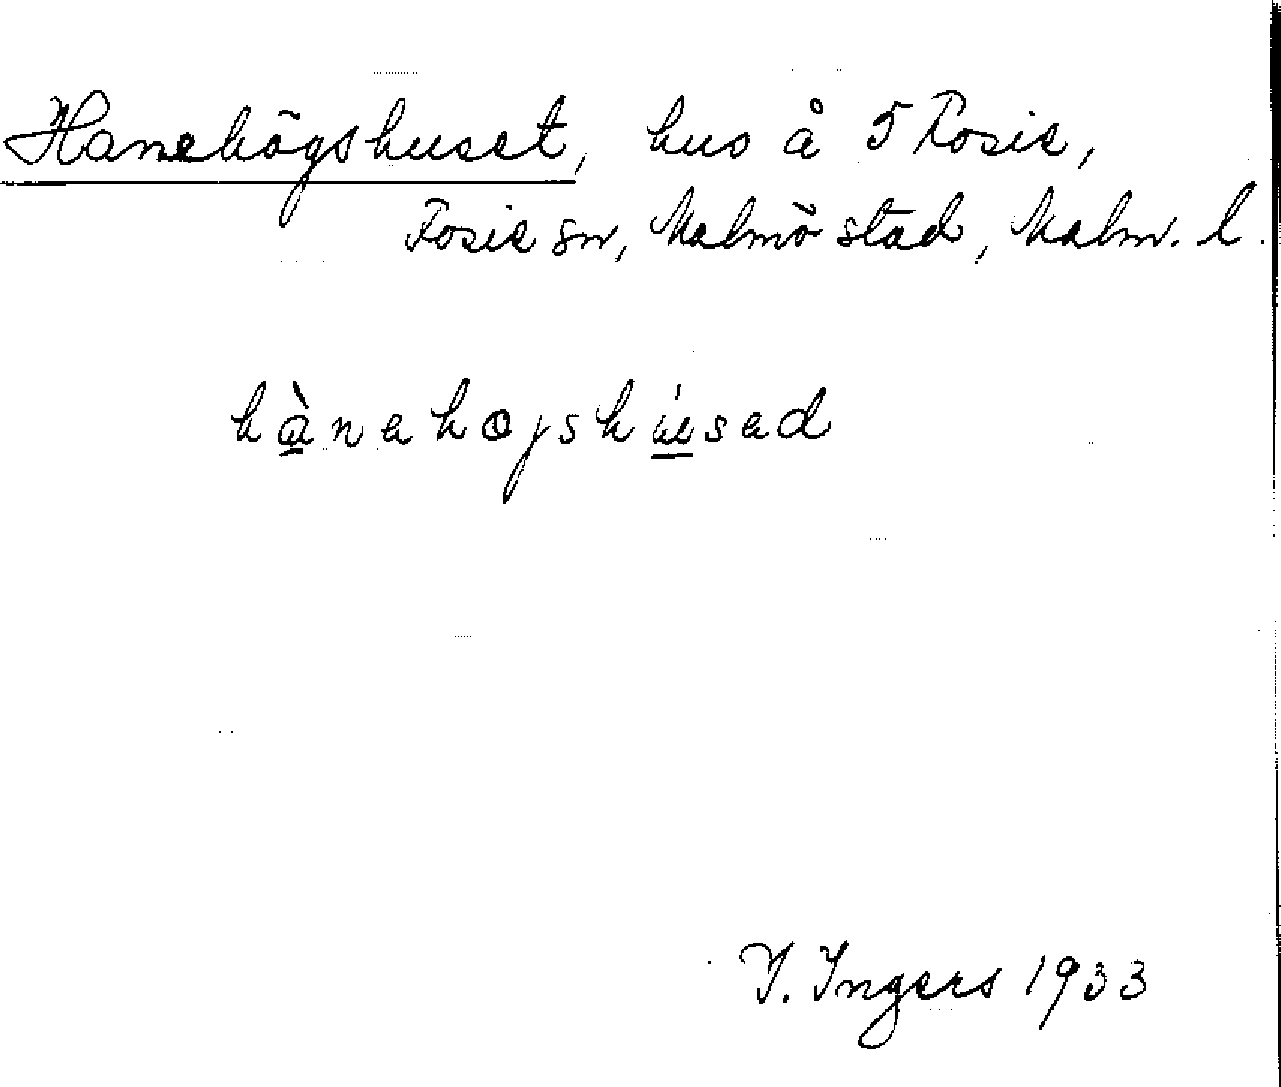 Hanehögshuset, hus å 5 Fosie,
Fosie sn, Malmö stad, Malm. l.
hànahojshúsad
I. Ingers 1933